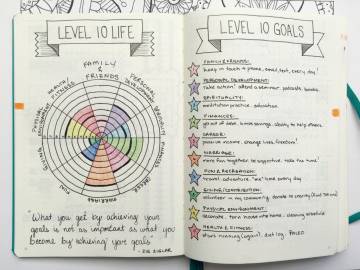 LEVEL 10 LIFE
FAMILY
& FRIENDS
PERSONAL
DEVELOPMENT
SPIRITUALITY
FINANCES
CAREER
MARRIAGE
FUN
GIVING
PHYSICAL
ENVIRONMENT
HEALTH/
FITNESS
"What you get by achieving your
goals is not as important as what you
become by achieving your goals"
- ZIG ZIGLAR
LEVEL 10 GOALS
FAMILY & FRIENDS:
keep in touch + phone, email, text, every day!
PERSONAL DEVELOPMENT:
Take action! attend a seminar, podcasts, books
SPIRITUALITY:
meditation practice, education
FINANCES:
get out of debt, increase savings, ability to help others
CAREER:
passive income, change lives, freedom!
MARRIAGE:
more fun together, be supportive, take the time!
FUN & RECREATION:
travel, adventure, "me" time every day
GIVING/CONTRIBUTION:
volunteer in my community, donate to charity
PHYSICAL ENVIRONMENT:
decorate, turn house into home, cleaning schedule
HEALTH & FITNESS:
start running (again), eat log, PALEO